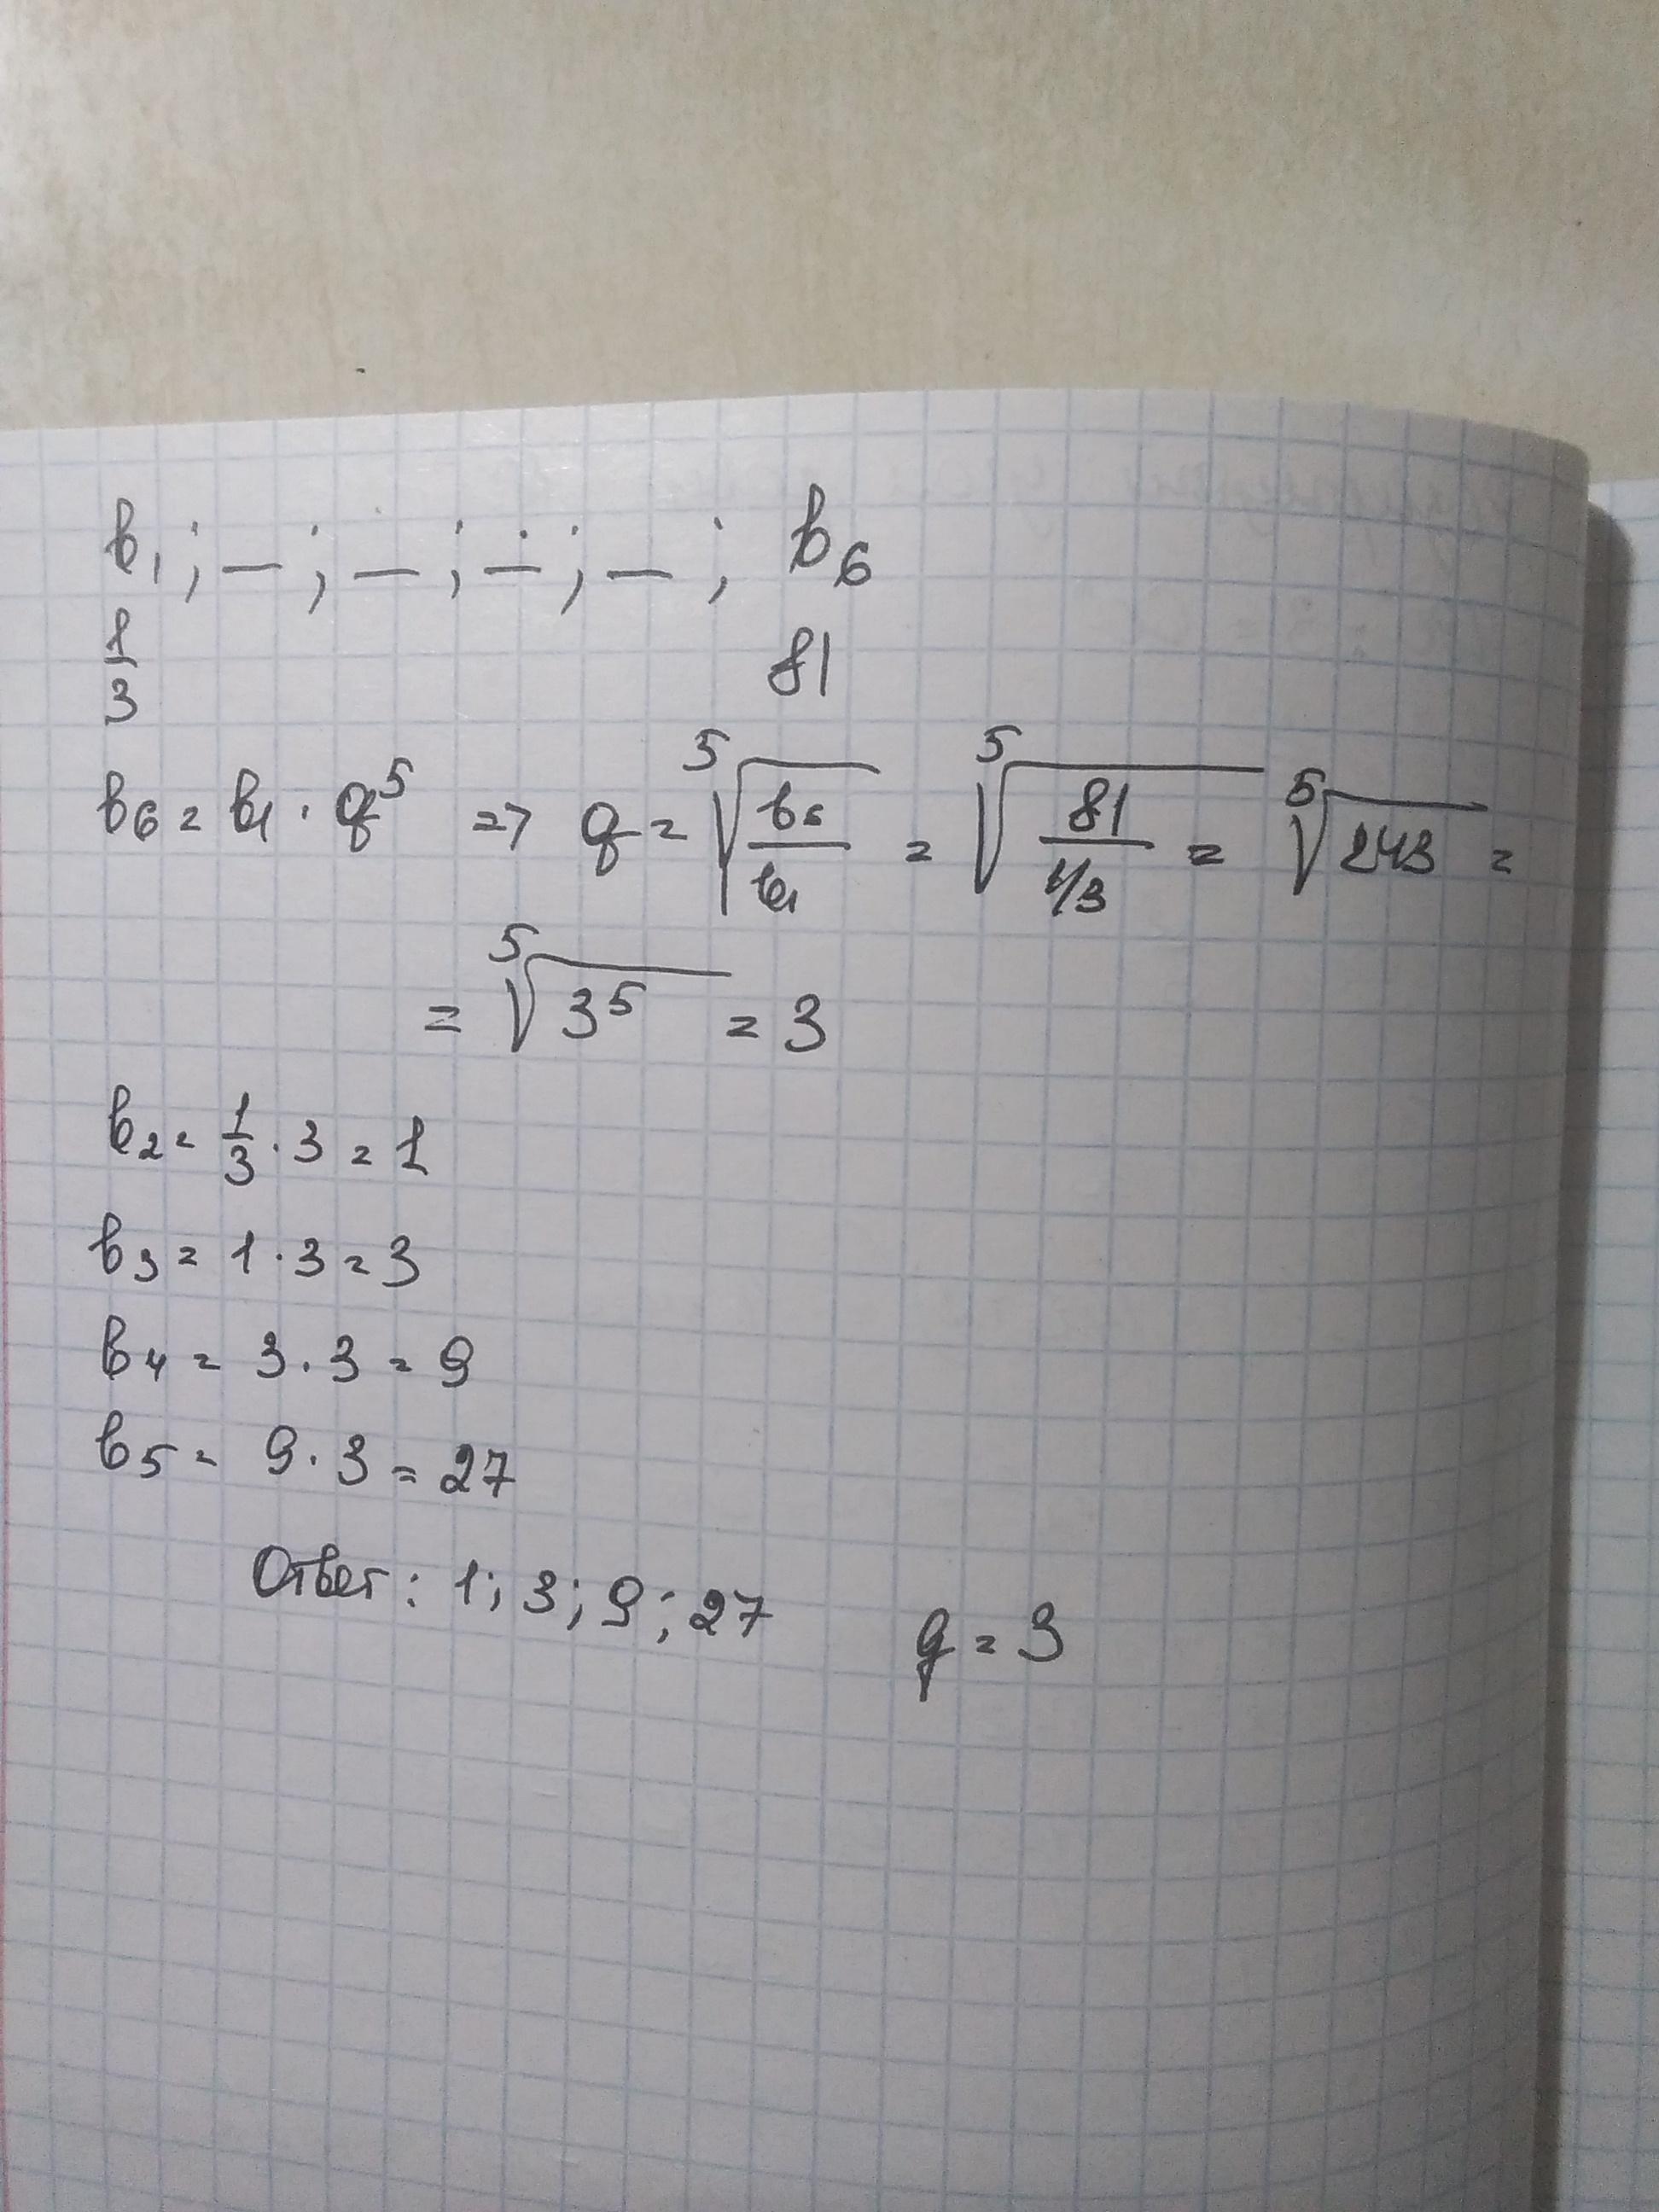 b₁; _; _; _; _; b₆
1/3 81
b₆ = b₁ · q⁵ => q = ⁵√(b₆/b₁) = ⁵√(81/(1/3)) = ⁵√243 =
= ⁵√3⁵ = 3
b₂ = 1/3 · 3 = 1
b₃ = 1 · 3 = 3
b₄ = 3 · 3 = 9
b₅ = 9 · 3 = 27
Ответ: 1; 3; 9; 27 q = 3